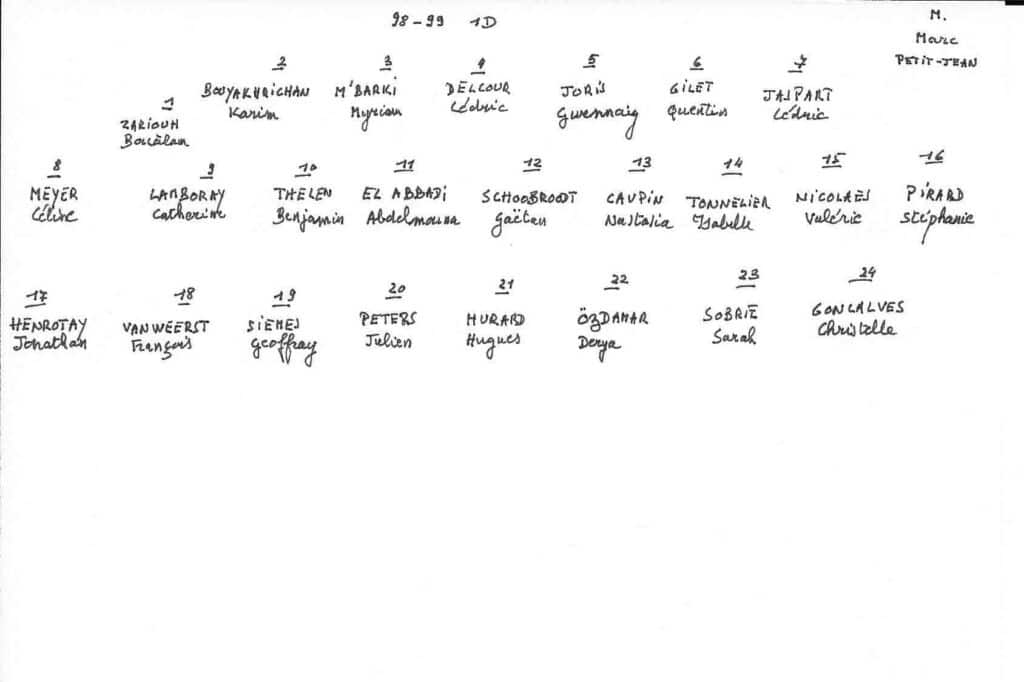 98-99 1D
M.
Marc
PETIT-JEAN
1 2 3 4 5 6 7
ZARIOUH BOUYAKHRICHAN M'BARKI DELCOUR JORIS GILET JASPART
Karim Myriam Cédric Gwennaig Quentin Cédric
8 9 10 11 12 13 14 15 16
MEYER LAMBORAY THELEN EL ABBADI SCHOOBROODT CAUPIN TONNELIER NICOLAES PIRARD
Céline Catherine Benjamin Abdelmouna Gaëtan Nastasia Isabelle Valérie Stéphanie
17 18 19 20 21 22 23 24
HENROTAY VANWEERST SIEMES PETERS HURARD ÖZDAMAR SOBRIE GONCALVES
Jonathan François Geoffray Julien Hugues Derya Sarah Christelle